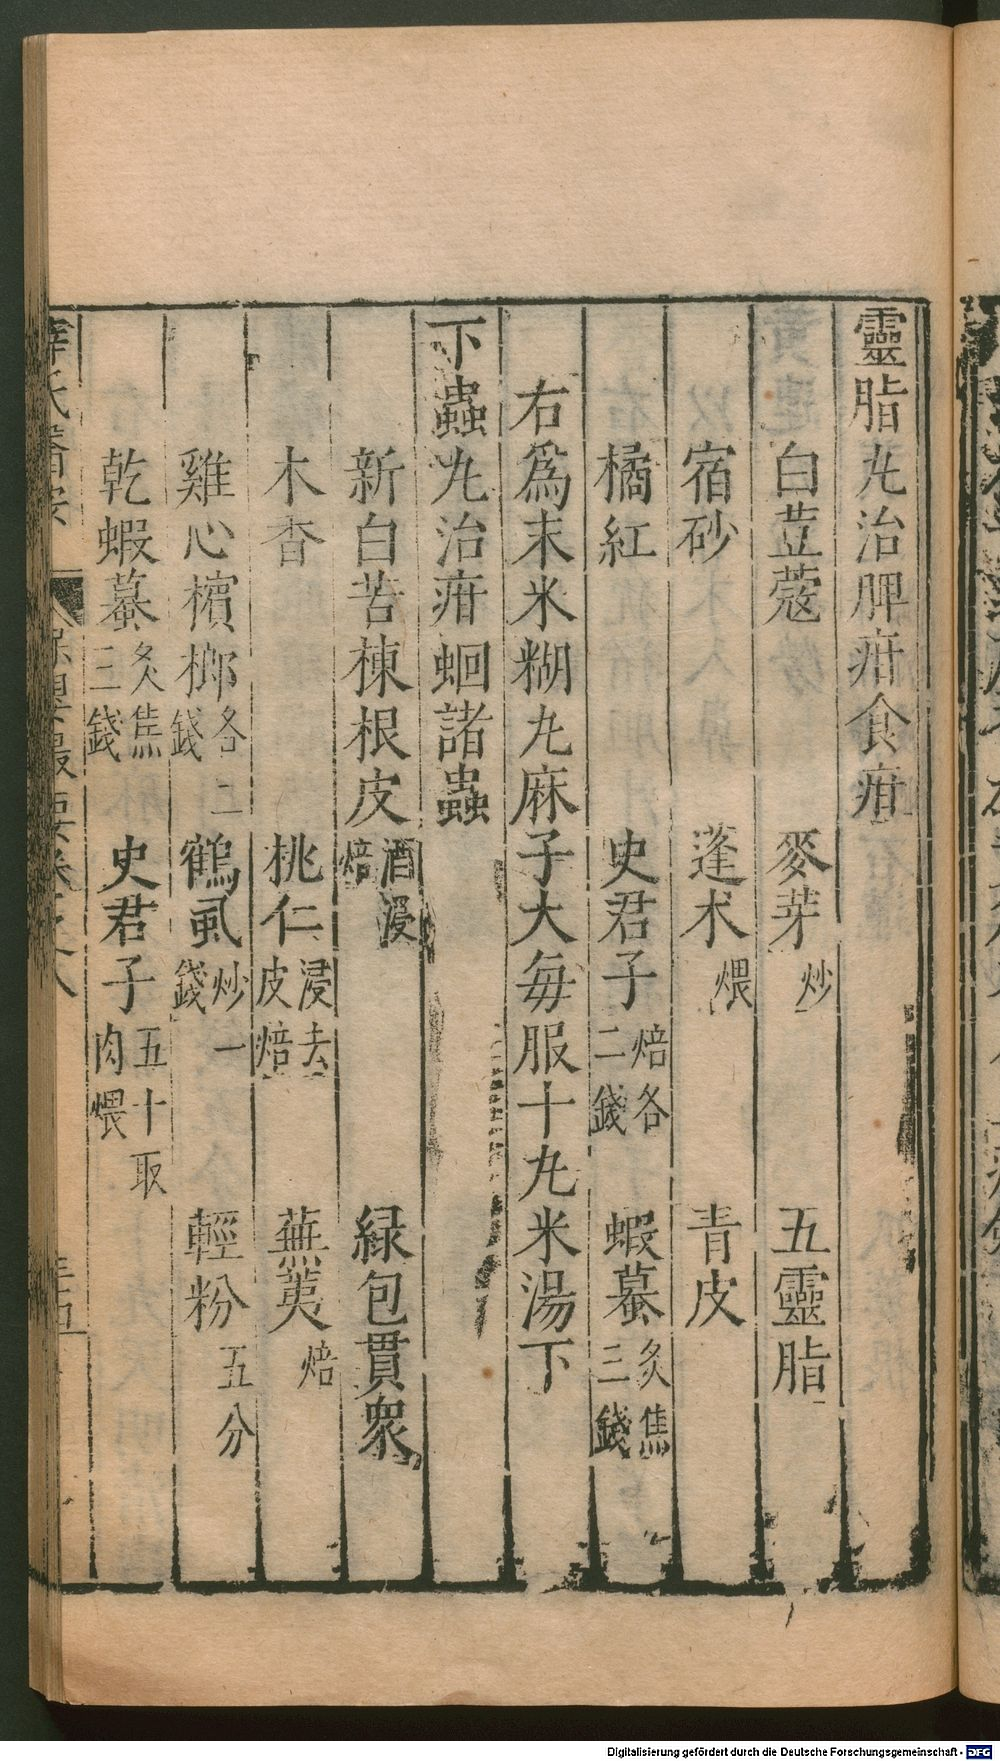 靈脂丸治脾疳食疳
白荳蔻　麥芽炒　五靈脂
宿砂　蓬朮煨　青皮
橘紅　史君子焙各二錢　蝦蟇炙焦三錢
右爲末米糊丸麻子大每服十丸米湯下
下蟲丸治疳蛔諸蟲
新白苦楝根皮酒浸焙　緑包貫衆
木杳　桃仁浸去皮焙　蕪荑焙
雞心檳榔各二錢　鶴虱炒一錢　輕粉五分
乾蝦蟇炙焦三錢　史君子五十取肉煨
薛氏醫案　保嬰撮要卷之八
Digitalisierung gefördert durch die Deutsche Forschungsgemeinschaft - DFG